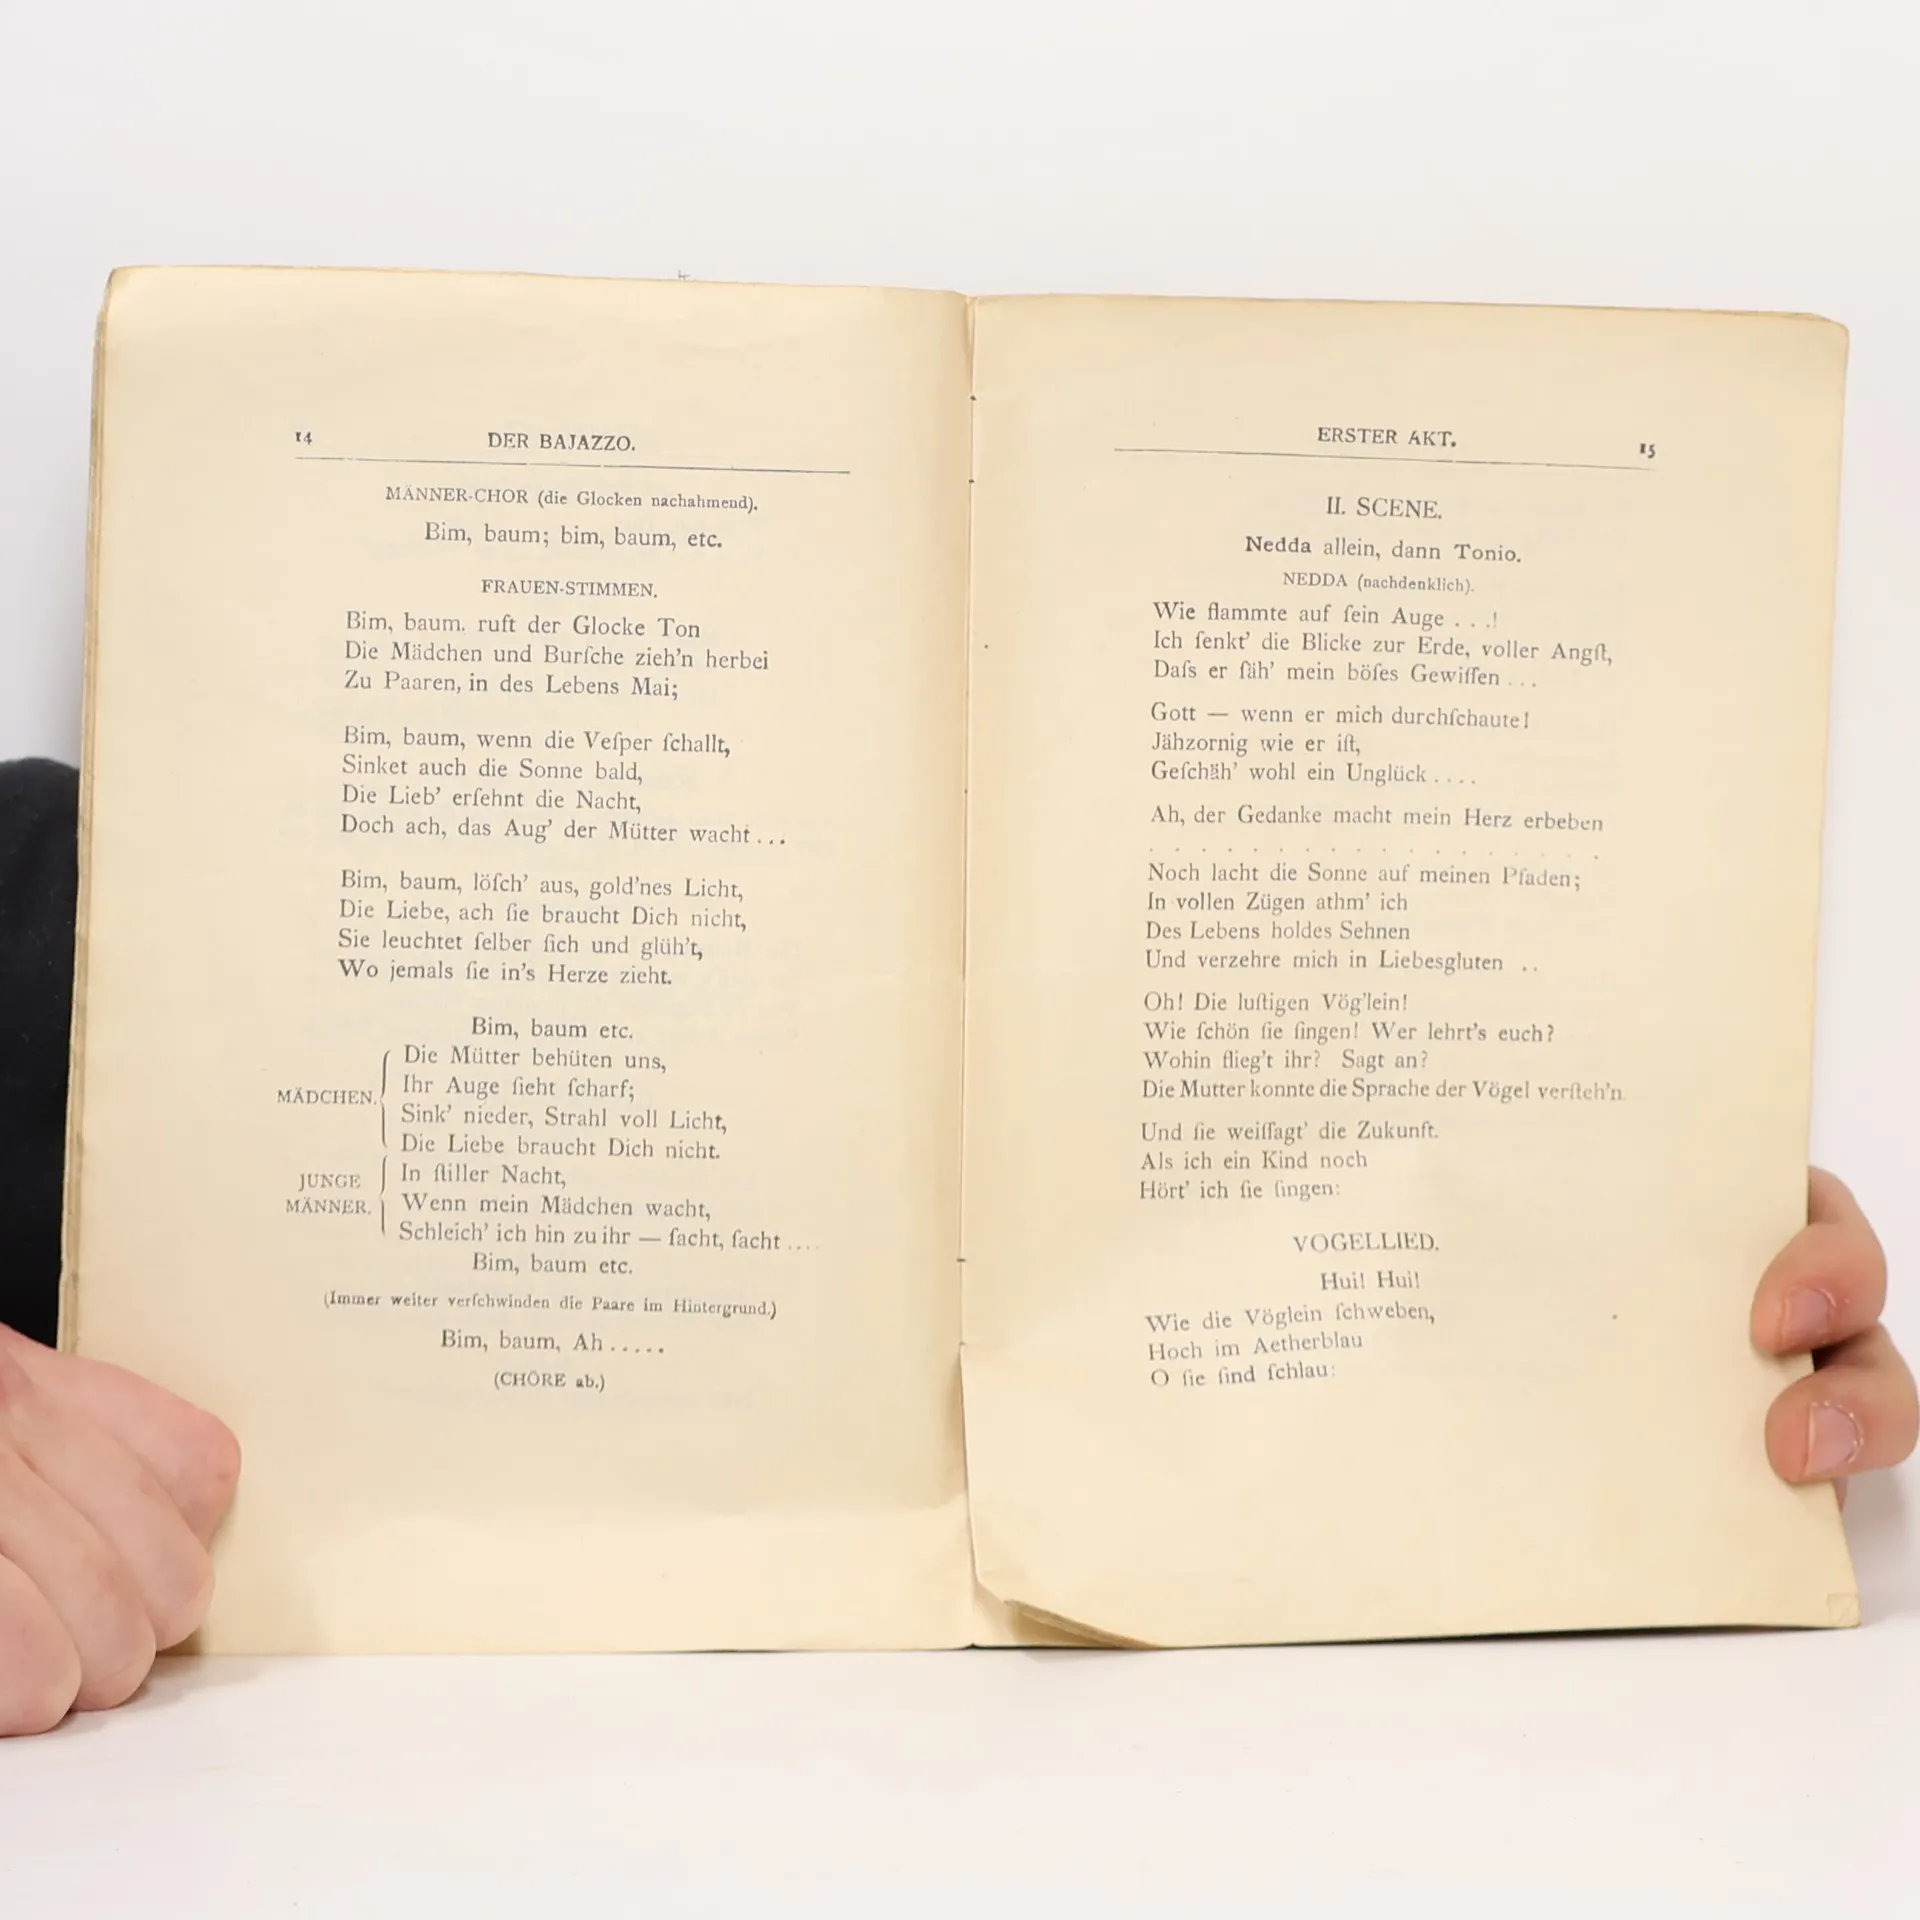 14 DER BAJAZZO.
MÄNNER-CHOR (die Glocken nachahmend).
Bim, baum; bim, baum, etc.
FRAUEN-STIMMEN.
Bim, baum. ruft der Glocke Ton
Die Mädchen und Burſche zieh'n herbei
Zu Paaren, in des Lebens Mai;
Bim, baum, wenn die Veſper ſchallt,
Sinket auch die Sonne bald,
Die Lieb' erſehnt die Nacht,
Doch ach, das Aug' der Mütter wacht ...
Bim, baum, löſch' aus, gold'nes Licht,
Die Liebe, ach ſie braucht Dich nicht,
Sie leuchtet ſelber ſich und glüh't,
Wo jemals ſie in's Herze zieht.
Bim, baum etc.
Die Mütter behüten uns,
Ihr Auge ſieht ſcharf;
MÄDCHEN.
Sink' nieder, Strahl voll Licht,
Die Liebe braucht Dich nicht.
In ſtiller Nacht,
JUNGE
MÄNNER.
Wenn mein Mädchen wacht,
Schleich' ich hin zu ihr — ſacht, ſacht ....
Bim, baum etc.
(Immer weiter verſchwinden die Paare im Hintergrund.)
Bim, baum, Ah .....
(CHÖRE ab.)
ERSTER AKT. 15
II. SCENE.
Nedda allein, dann Tonio.
NEDDA (nachdenklich).
Wie flammte auf ſein Auge . . .!
Ich ſenkt' die Blicke zur Erde, voller Angſt,
Daſs er ſäh' mein böſes Gewiſſen ...
Gott — wenn er mich durchſchaute!
Jähzornig wie er iſt,
Geſchäh' wohl ein Unglück ....
Ah, der Gedanke macht mein Herz erbeben
. . . . . . . . . . . . . . . . . .
Noch lacht die Sonne auf meinen Pfaden;
In vollen Zügen athm' ich
Des Lebens holdes Sehnen
Und verzehre mich in Liebesgluten ..
Oh! Die luſtigen Vög'lein!
Wie ſchön ſie ſingen! Wer lehrt's euch?
Wohin flieg't ihr? Sagt an?
Die Mutter konnte die Sprache der Vögel verſteh'n
Und ſie weiſſagt' die Zukunft.
Als ich ein Kind noch
Hört' ich ſie ſingen:
VOGELLIED.
Hui! Hui!
Wie die Vöglein ſchweben,
Hoch im Aetherblau
O ſie ſind ſchlau: